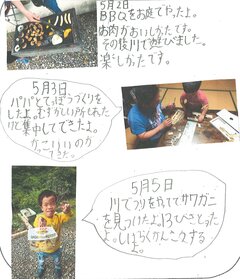 5月2日
BBQをお庭でやったよ。
お肉がおいしかたです。
その後川で遊びました。
楽しかたです。
5月3日
パパとてっぽうつくりを
したよ。むずかしい
けど集中してできたよ。
かっこいいのが
できた。
5月5日
川でつりをやてサワガニ
を見つけたよ。13びきとった
よ。しばらくかんさつする
よ。